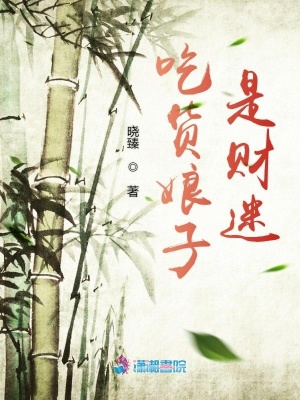 吃货娘子
是财迷
晓臻◎著
潇湘書院